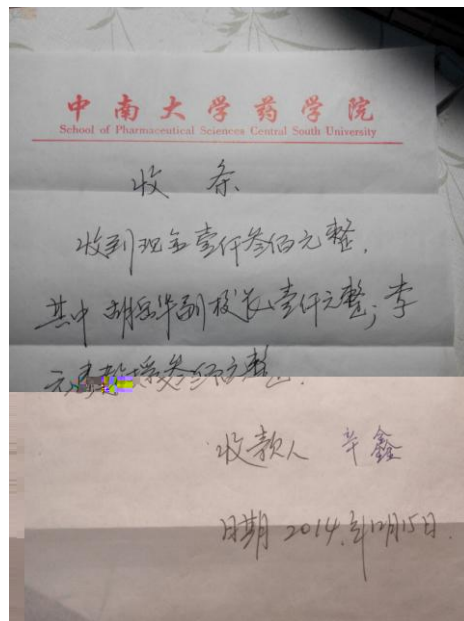 中南大学药学院
School of Pharmaceutical Sciences Central South University
收条
收到现金壹仟叁佰元整.
其中胡岳华副校长壹仟元整;李
元建教授叁佰元整.
收款人 辛鑫
日期 2014.年12月15日.